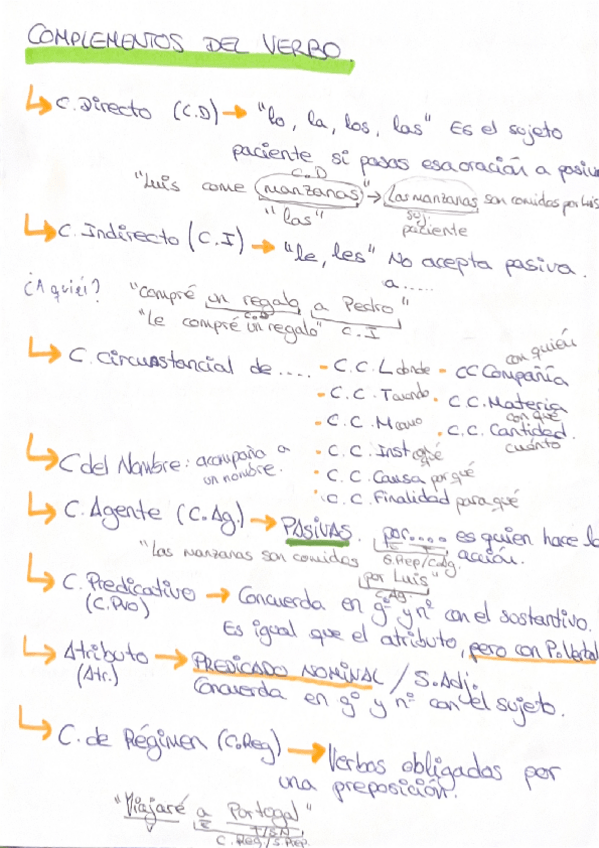 COMPLEMENTOS DEL VERBO.
C. Directo (C.D) → "lo, la, los, las" Es el sujeto
paciente si pasas esa oración a pasiva
C.D
"Luis come manzanas" → Las manzanas son comidas por Luis
"las" suj. paciente
C. Indirecto (C.I) → "le, les" No acepta pasiva.
a.....
¿A quién? "Compré un regalo a Pedro"
C.D
"Le compré un regalo" C.I
C. Circunstancial de.... - C.C. L donde - CC Compañía con quién
- C.C. T cuando. - C.C. Materia con qué
- C.C. M como - C.C. Cantidad. cuánto
- C.C. Inst qué
- C.C. Causa por qué
- C.C. Finalidad para qué
C del Nombre: acompaña a
un nombre.
C. Agente (C.Ag.) → PASIVAS. por.... es quien hace la
acción.
S.Prep/C.Ag.
"Las manzanas son comidas por Luis"
C.Ag
C. Predicativo → Concuerda en gº y nº con el sustantivo.
(C.Pvo)
Es igual que el atributo, pero con P.Verbal
Atributo → PREDICADO NOMINAL / S.Adj.
(Atr.)
Concuerda en gº y nº con el sujeto.
C. de Régimen (C.Reg) → Verbos obligados por
una preposición.
"Viajaré a Portugal"
E T/SN
C.Reg/S.Prep.